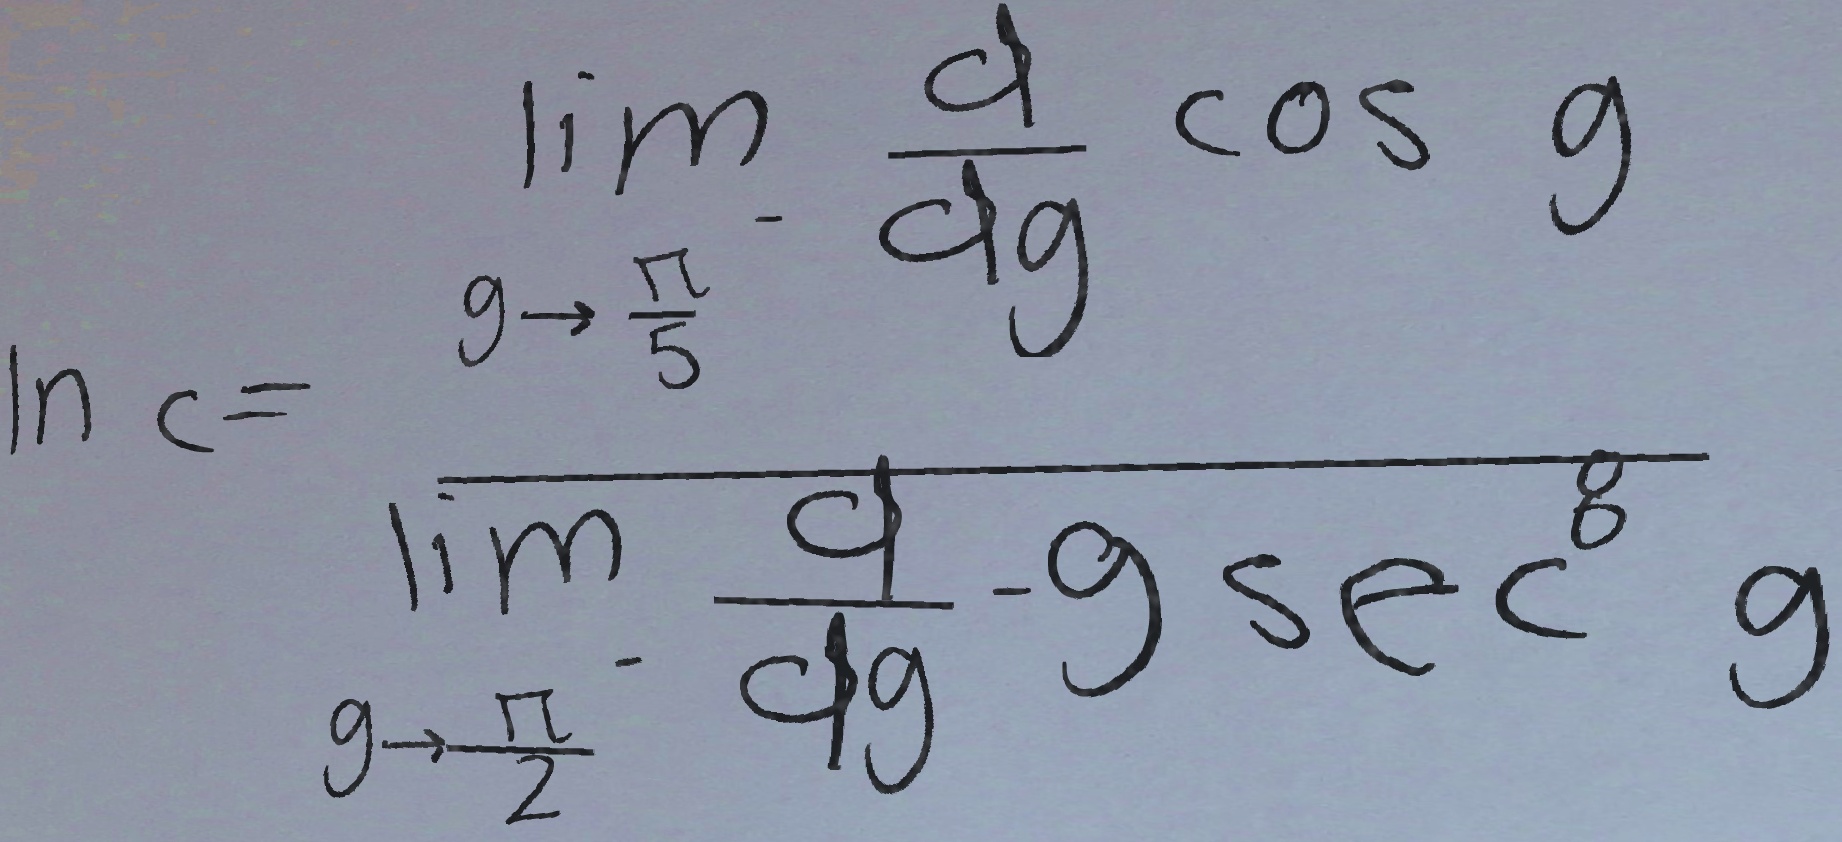 ln c = \frac{\lim_{g \to \frac{\pi}{5}^-} \frac{d}{dg} \cos g}{\lim_{g \to \frac{\pi}{2}^-} \frac{d}{dg} -g \sec^8 g}